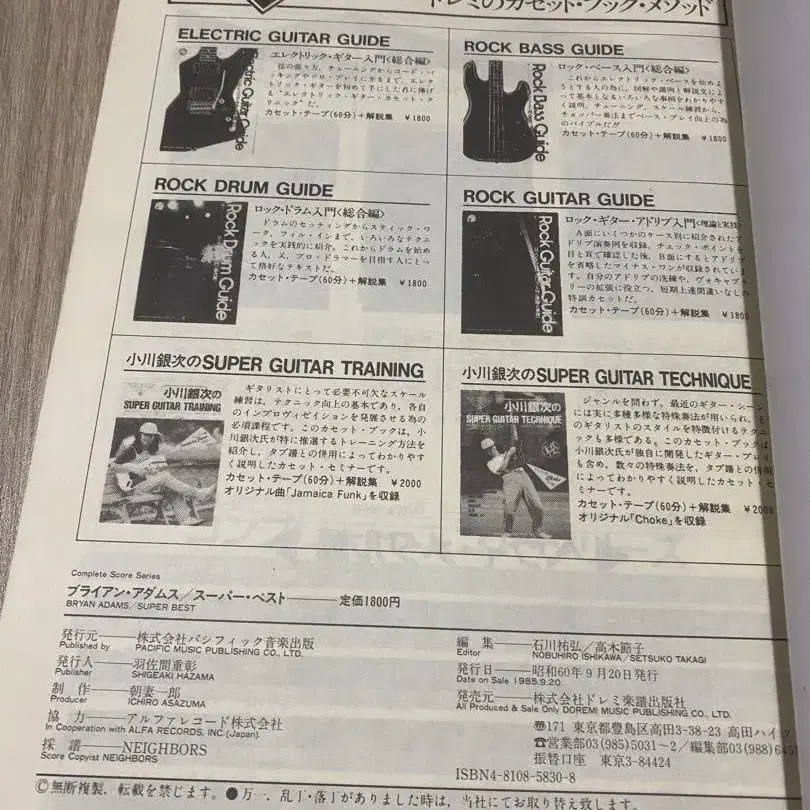 ドレミのカセット・ブック・メソッド
ELECTRIC GUITAR GUIDE
Electric Guitar Guide
エレクトリック・ギター入門〈総合編〉
弦の張り方、チューニングからコード・バ
ッキングやソロ・プレイに至るまで、エレク
トリック・ギターを初めて手にした人に捧げ
る“エレクトリック・ギター・カセット・ク
リニック”だ。
カセット・テープ(60分)＋解説集 ￥1800
ROCK BASS GUIDE
Rock Bass Guide
ロック・ベース入門〈総合編〉
これからエレクトリック・ベースを始めよ
うとする人の為に、図解や譜例と解説文によ
って基本となるいろいろな事柄をわかりやす
く説明。チューニング、スケール練習から、
チョッパー奏法までベース・プレイ向上の為
のバイブルだ!!
カセット・テープ(60分)＋解説集 ￥1800
ROCK DRUM GUIDE
Rock Drum Guide
ロック・ドラム入門〈総合編〉
ドラムのセッティングからスティック・ワ
ーク、フィル・インまで、いろいろなテクニ
ックを実践的に紹介。これからドラムを始め
る人、又、プロ・ドラマーを目指す人にとっ
て格好なテキストだ。
カセット・テープ(60分)＋解説集 ￥1800
ROCK GUITAR GUIDE
Rock Guitar Guide
ロック・ギター・アドリブ入門〈理論と実技
A面にいくつかのケース別に紹介されたア
ドリブ演奏例を収録。チェック・ポイントを
目と耳で確認した後、B面にするとアドリブ
を省略したマイナス・ワンが収録されていま
す。自分のアドリブの洗練や、ヴォキャブラ
リーの拡張に役立つ、短期上達間違いなしの
特訓カセットだ。
カセット・テープ(60分)＋解説集 ￥1800
小川銀次のSUPER GUITAR TRAINING
小川銀次の
SUPER GUITAR TRAINING
ギタリストにとって必要不可欠なスケール
練習は、テクニック向上の基本であり、各自
のインプロヴィゼイションを発展させる為の
必須課程です。このカセット・ブックは、小
川銀次氏が特に推進するトレーニング方法を
紹介し、タブ譜との併用によってわかりやす
く説明したカセット・セミナーです。
カセット・テープ(60分)＋解説集 ￥2000
オリジナル曲「Jamaica Funk」を収録
小川銀次のSUPER GUITAR TECHNIQUE
小川銀次の
SUPER GUITAR TECHNIQUE
ジャンルを問わず、最近のギター・シーン
には実に多種多様な特殊奏法が用いられ、そ
のギタリストのスタイルを特徴付けるテクニ
ックも多様である。このカセット・ブックは、
小川銀次氏が独自に開発したギター・プレイ
も含め、数々の特殊奏法を、タブ譜との併用
によってわかりやすく説明したカセット・セ
ミナーです。
カセット・テープ(60分)＋解説集 ￥2000
オリジナル「Choke」を収録
Complete Score Series
ブライアン・アダムス／スーパー・ベスト――定価1800円
BRYAN ADAMS/SUPER BEST
発行元――株式会社パシフィック音楽出版
Published by PACIFIC MUSIC PUBLISHING CO., LTD.
発行人――羽佐間重彰
Publisher SHIGEAKI HAZAMA
制 作――朝妻一郎
Producer ICHIRO ASAZUMA
協 力――アルファレコード株式会社
In Cooperation with ALFA RECORDS, INC.(Japan).
採 譜――NEIGHBORS
Score Copyist NEIGHBORS
編 集――石川祐弘／高木節子
Editor NOBUHIRO ISHIKAWA/SETSUKO TAKAGI
発行日――昭和60年9月20日発行
Date on Sale 1985.9.20.
発売元――株式会社ドレミ楽譜出版社
All Produced & Sale Only DOREMI MUSIC PUBLISHING CO., LTD.
〠171 東京都豊島区高田3-38-23 高田ハイツ
☎営業部03(985)5031～2／編集部03(988)645
振替口座 東京3-84424
ISBN4-8108-5830-8
©無断複製、転載を禁じます。●万一、乱丁・落丁がありました時は、当社にてお取り替え致します。